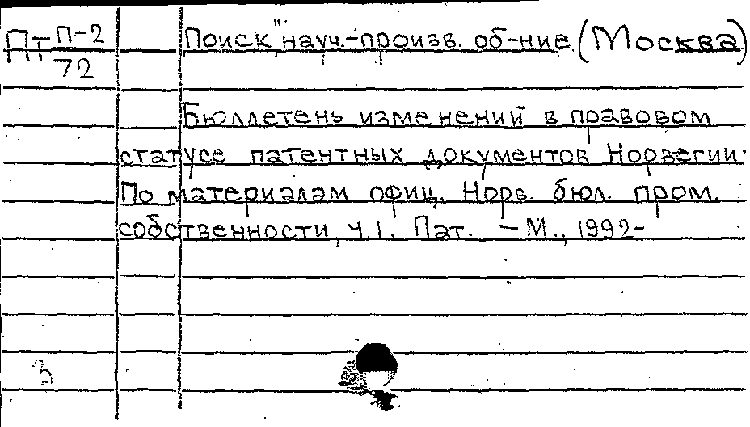 Пт П-2 Поиск", науч.-произв. об-ние (Москва)
72
Бюллетень изменений в правовом
статусе патентных документов Норвегии.
По материалам офиц. Норв. бюл. пром.
собственности, ч.1. Пат. – М., 1992-